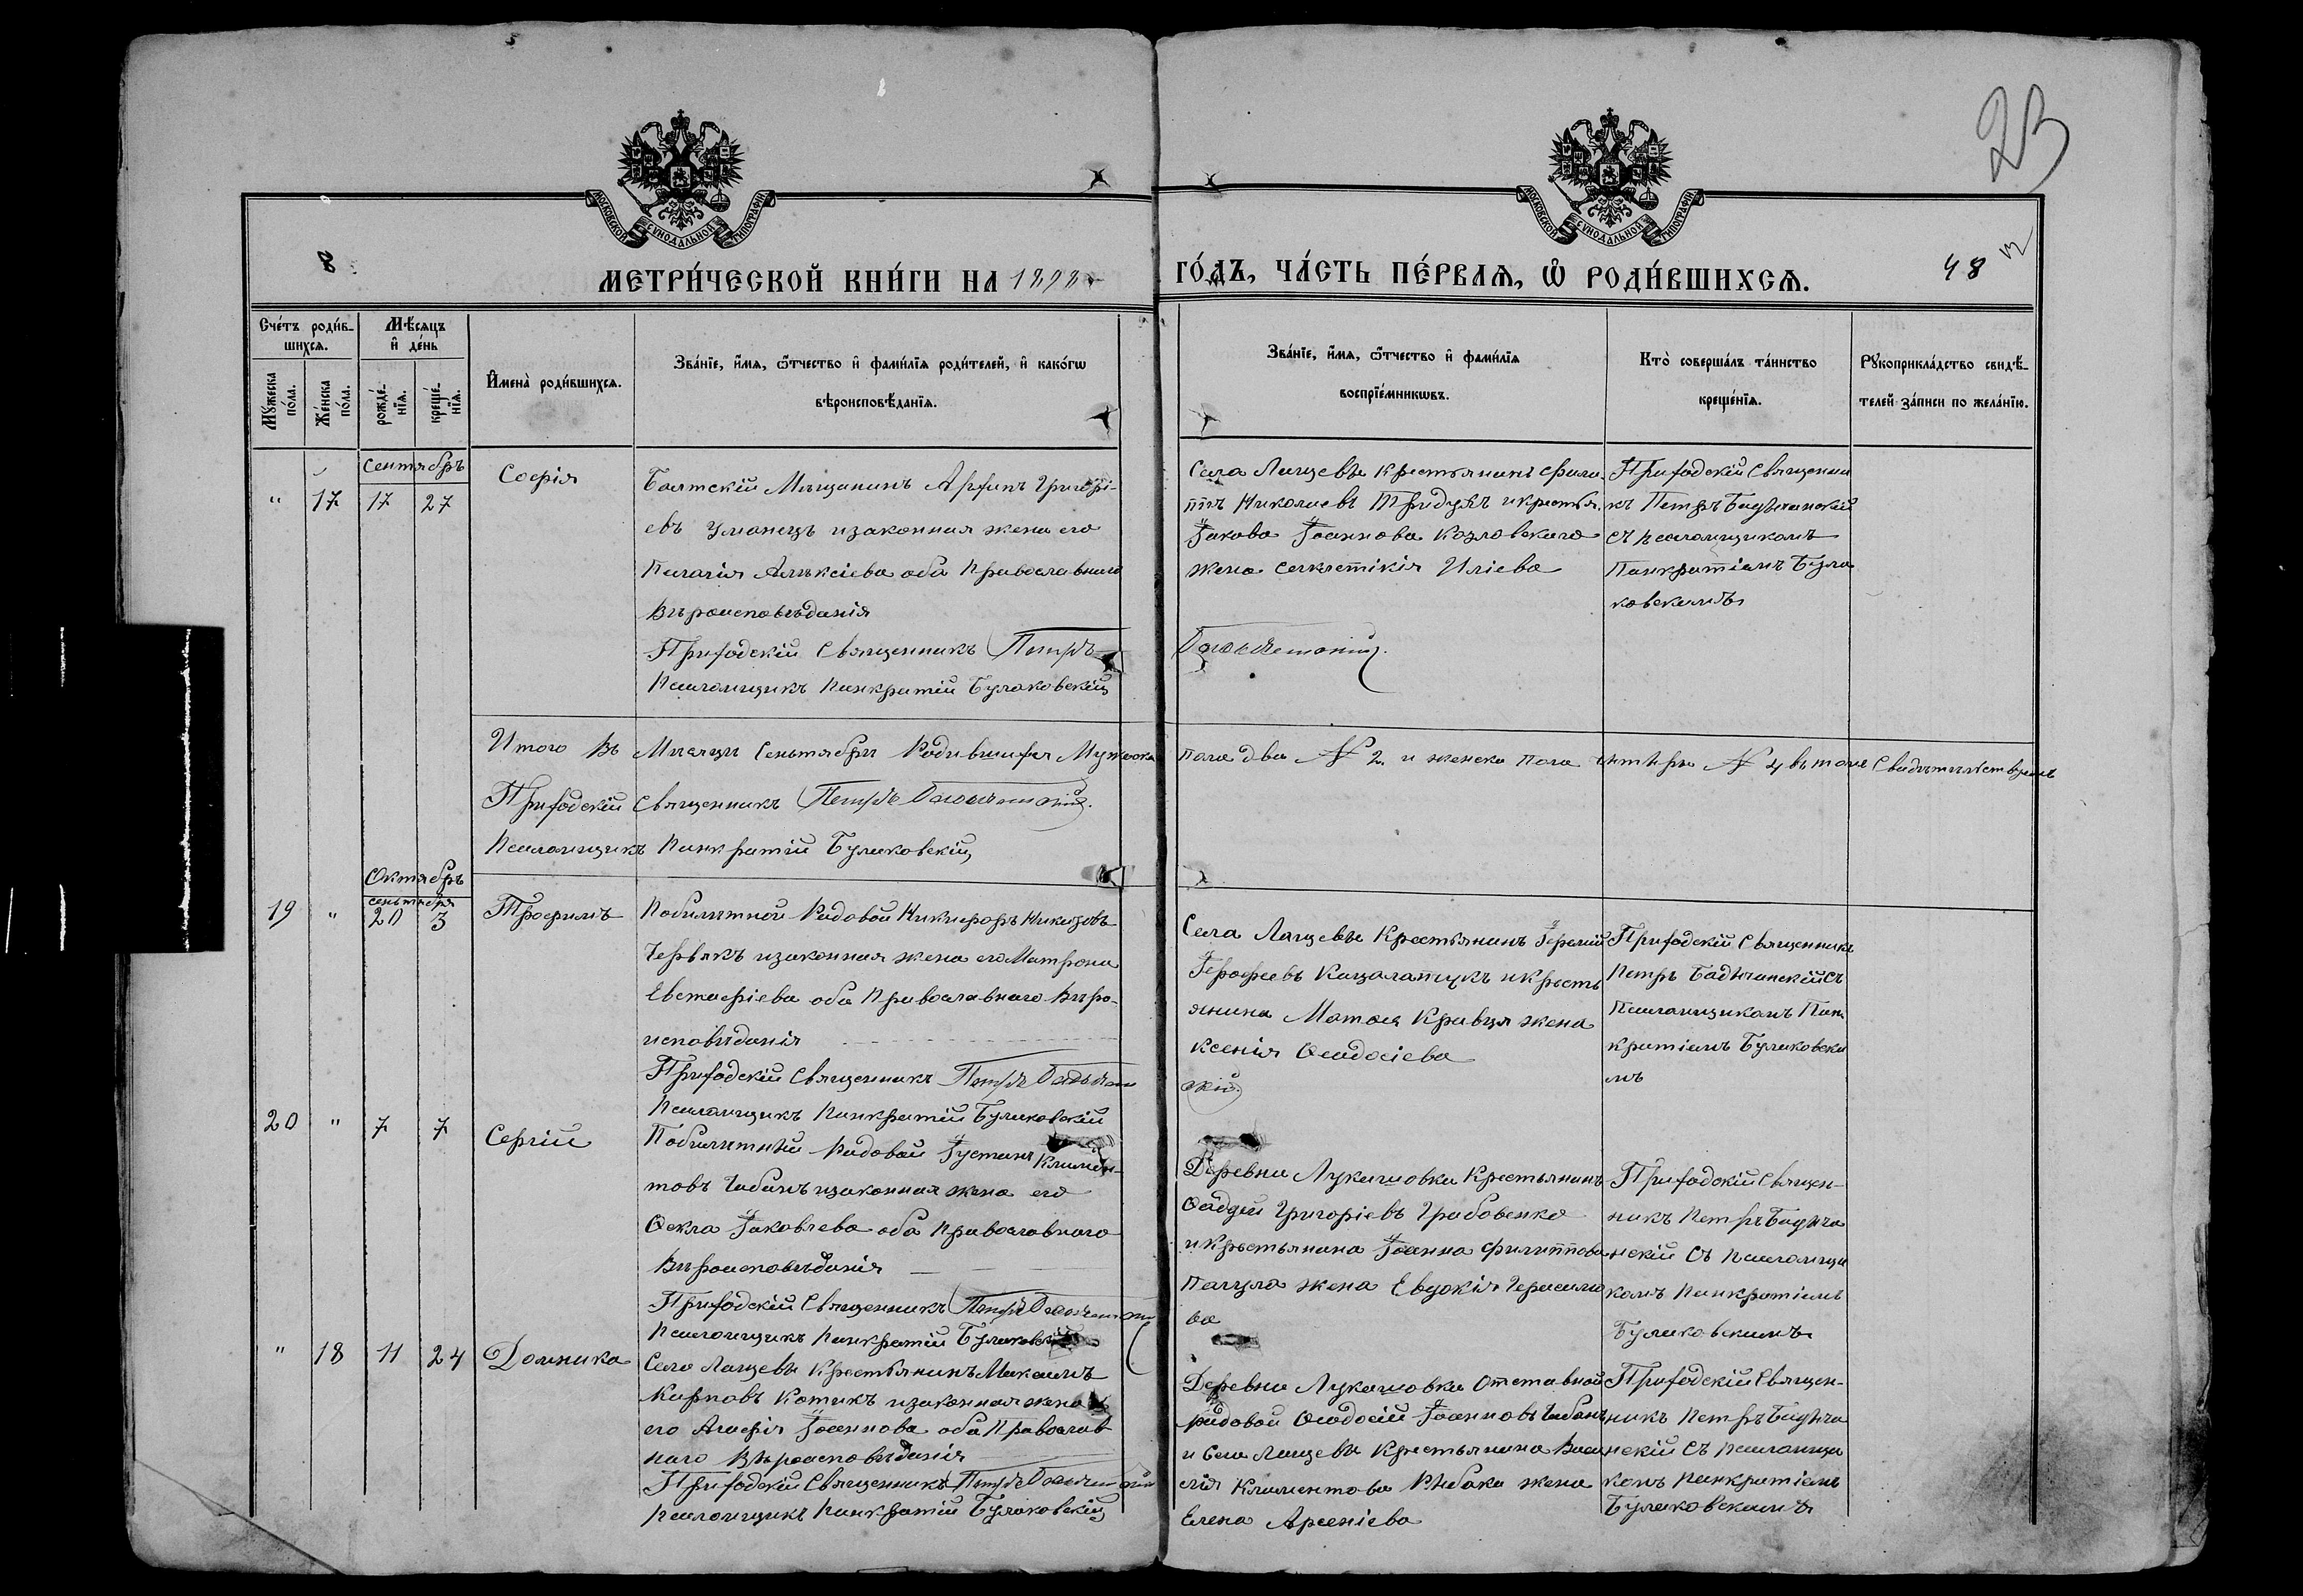 23
МОСКОВСКОЙ СУНОДАЛЬНОЙ ТИПОГРАФІИ
МОСКОВСКОЙ СУНОДАЛЬНОЙ ТИПОГРАФІИ
8
МЕТРИ́ЧЕСКОЙ КНИ́ГИ НА 1898
ГО́ДЪ, ЧА́СТЬ ПЕ́РВАѦ, Ѿ РОДИ́ВШИХСѦ.
48
Сче́тъ роди́в-
шихся.
Мѣ́сяцъ
и҆ де́нь
Мꙋ́жеска
по́ла.
Же́нска
по́ла.
рожде́-
нїя.
креще́-
нїя.
И҆мена̀ роди́вшихся.
Зва́нїе, и҆́мя, ѻ҆́тчество и҆ фами́лїя роди́телей, и҆ како́гѡ
вѣроисповѣ́данїя.
Зва́нїе, и҆́мя, ѻ҆́тчество и҆ фами́лїя
воспрїе́мникѡвъ.
Кто̀ соверша́лъ та́инство
креще́нїя.
Рꙋкоприкла́дство свидѣ́-
телей за́писи по жела́нїю.
Сентябръ
" 17 17 27
Софія
Балтскій Мѣщанинъ Григорі-
евъ Уманецъ изаконная жена его
Пелагія Алексіева оба Православнаго
Вѣроисповѣданія
Приходскій Священникъ Петръ
Псаломщикъ Панкратій Булаковскій
Села Лащевы крестьянинъ Фили-
ппъ Николаевъ икрестья.
Іакова Іоаннова Козловскаго
жена Иліева
Приходскій Священни
къ Петръ
съ псаломщикомъ
Панкратіемъ Була
ковскимъ
Итого въ Мѣсяцѣ Сентябрѣ Родившихся Мужеска пола два № 2 и женска пола четыри № 4 въ томъ Свидѣтельствуемъ
Приходскій Священникъ Петръ
Псаломщикъ Панкратій Булаковскій
Октябръ
сентября
19 " 20 3
Трофимъ
Побилетной Рядовой Никифоръ
Червякъ изаконная жена его Матрона
Евстафіева оба Православнаго Вѣро-
исповѣданія
Приходскій Священникъ Петръ
Псаломщикъ Панкратій Булаковскій
Села Лащевы Крестьянинъ
Іерофеевъ икресть
янина Матвея Кравця жена
Ксенія Ѳеодосіева
скій
Приходскій Священникъ
Петръ съ
Псаломщикомъ Пан
кратіемъ Булаковски
мъ
20 " 7 7
Сергій
Побилетный Рядовой Іустинъ Климен-
товъ Чабанъ изаконная жена его
Ѳекла Іаковлева оба Православнаго
Вѣроисповѣданія
Приходскій Священникъ Петръ
Псаломщикъ Панкратій Булаковскій
Деревни Лукашовки Крестьянинъ
Ѳаддей Григоріевъ Грабовенко
икрестьянина Іоанна Филиппова
жена Евдокія Герасимо
ва
Приходскій Священ-
никъ Петръ
нскій Съ псаломщи
комъ Панкратіемъ
Булаковскимъ
" 18 11 24
Домника
Села Лащевы Крестьянинъ Максимъ
Карповъ Котикъ изаконная жена
его Агафія Іоаннова оба Православ
наго Вѣроисповѣданія
Приходскій Священникъ Петръ
Псаломщикъ Панкратій Булаковскій
Деревни Лукашовки Отставной
рядовой Ѳеодосій Іоанновъ Чабанъ
и Села Лащевы Крестьянина Васи
лія Климентова Рыбака жена
Елена Арсеніева
Приходскій Священ-
никъ Петръ
нскій Съ псаломщи
комъ Панкратіемъ
Булаковскимъ